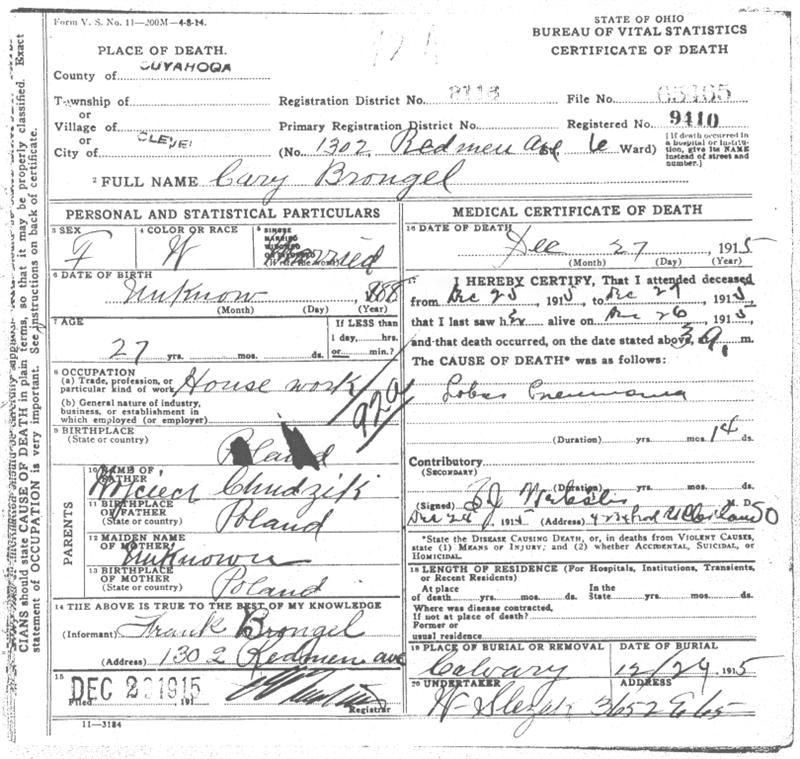 Form V. S. No. 11—200M—4-8-14.
STATE OF OHIO
BUREAU OF VITAL STATISTICS
CERTIFICATE OF DEATH
PLACE OF DEATH.
County of CUYAHOGA
Township of
or
Village of
or
City of CLEVE
Registration District No. 8118 File No.
Primary Registration District No. Registered No. 9410
(No. 1302 Redmen Ave 6 Ward)
[If death occurred in a hospital or institution, give its NAME instead of street and number.]
2 FULL NAME Cary Brongel
PERSONAL AND STATISTICAL PARTICULARS
3 SEX F
4 COLOR OR RACE W
5 SINGLE MARRIED WIDOWED OR DIVORCED (Write the word) Married
6 DATE OF BIRTH Unknow 1888
(Month) (Day) (Year)
7 AGE 27 yrs. mos. ds.
If LESS than 1 day, hrs. or min.?
8 OCCUPATION
(a) Trade, profession, or particular kind of work House work
(b) General nature of industry, business, or establishment in which employed (or employer)
92a
9 BIRTHPLACE
(State or country) Poland
PARENTS
10 NAME OF FATHER Wojciech Chudzik
11 BIRTHPLACE OF FATHER
(State or country) Poland
12 MAIDEN NAME OF MOTHER Unknown
13 BIRTHPLACE OF MOTHER
(State or country) Poland
14 THE ABOVE IS TRUE TO THE BEST OF MY KNOWLEDGE
(Informant) Frank Brongel
(Address) 1302 Redmen ave
15
Filed DEC 2 1915 191
Registrar
11—3184
MEDICAL CERTIFICATE OF DEATH
16 DATE OF DEATH
Dec 27 1915
(Month) (Day) (Year)
17 I HEREBY CERTIFY, That I attended deceased
from Dec 25 1915, to Dec 27 1915,
that I last saw her alive on Dec 26 1915,
and that death occurred, on the date stated above, at m.
The CAUSE OF DEATH* was as follows:
Lobar Pneumonia
(Duration) yrs. mos. 14 ds.
Contributory
(SECONDARY)
(Duration) yrs. mos. ds.
(Signed) M. D.
1915 (Address)
*State the DISEASE CAUSING DEATH, or, in deaths from VIOLENT CAUSES, state (1) MEANS OF INJURY; and (2) whether ACCIDENTAL, SUICIDAL, or HOMICIDAL.
18 LENGTH OF RESIDENCE (For Hospitals, Institutions, Transients, or Recent Residents)
At place of death yrs. mos. ds. In the State yrs. mos. ds.
Where was disease contracted, If not at place of death?
Former or usual residence
19 PLACE OF BURIAL OR REMOVAL Calvary
DATE OF BURIAL 12/29 1915
20 UNDERTAKER
ADDRESS 3652 E 65
CIANS should state CAUSE OF DEATH in plain terms, so that it may be properly classified. Exact
statement of OCCUPATION is very important. See instructions on back of certificate.